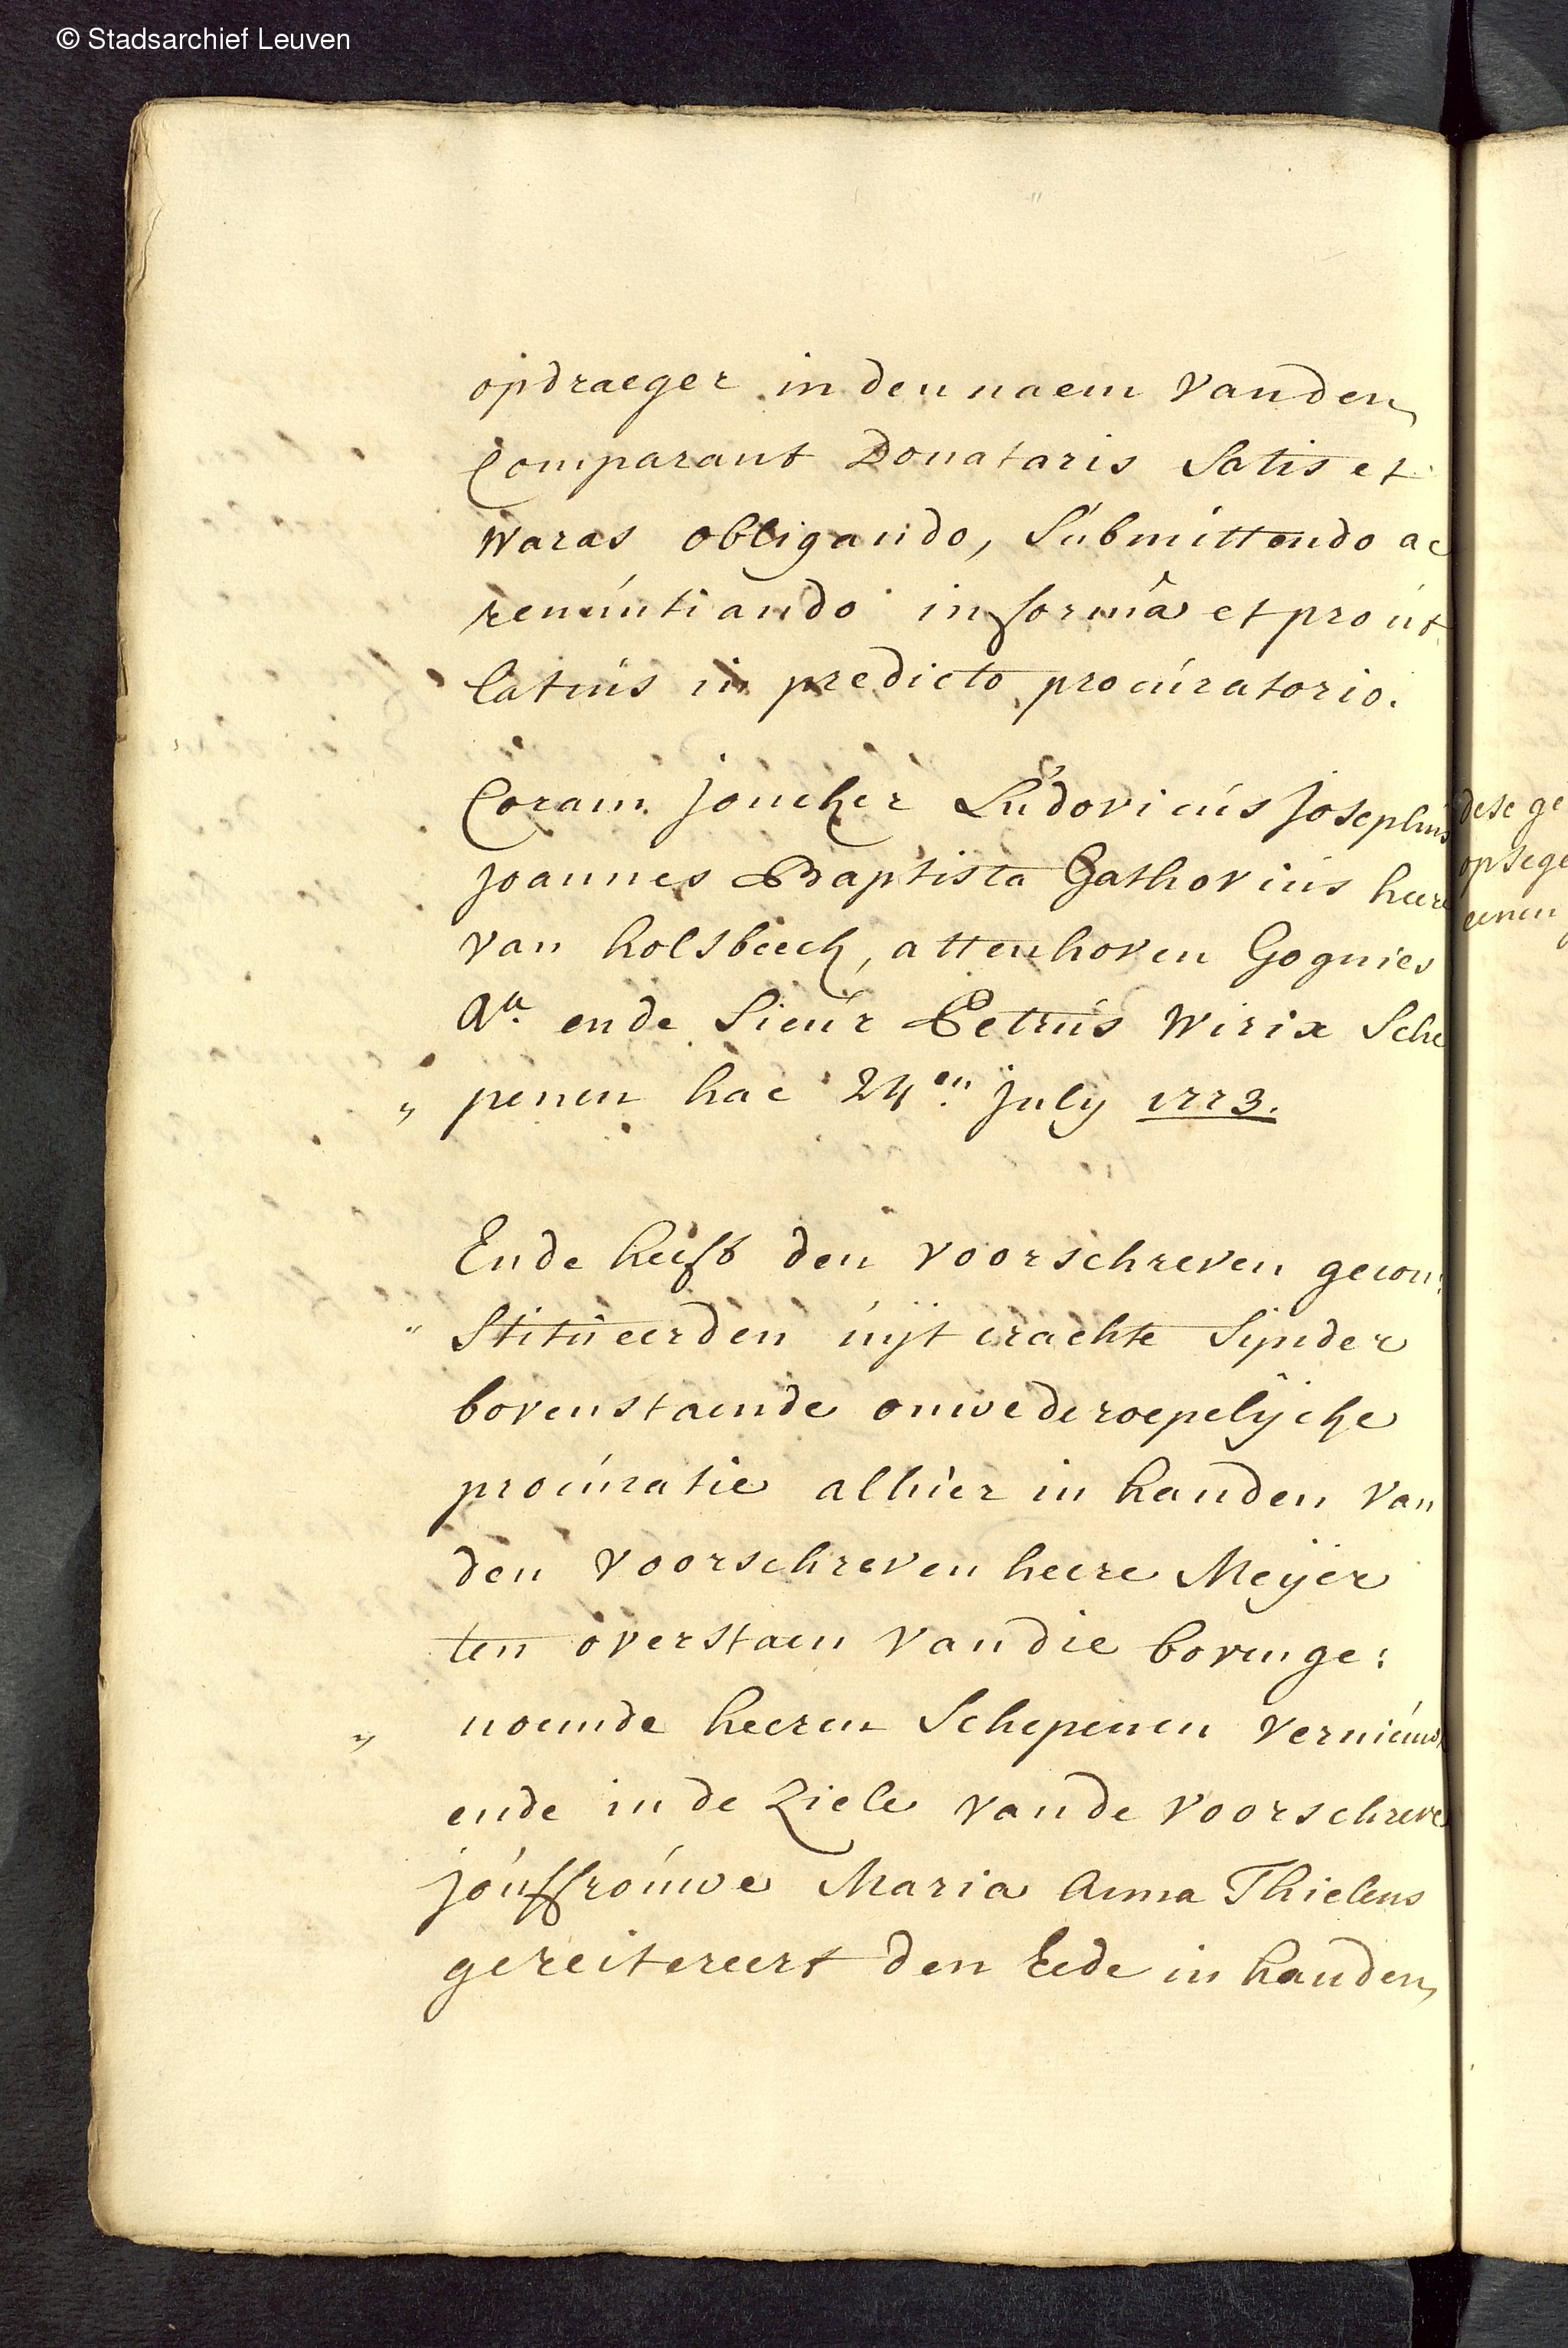 © Stadsarchief Leuven
opdraeger in den naem vanden
Comparant Donataris Satis et
Waras obligando, Submittendo ac
renuntiando in formâ et prout
latius in predicto procuratorio.
Coram joncker Ludovicus josephus
joannes Baptista Gathovius heere
van holsbeeck, attenhoven Gognies
&a. ende Sieur Petrus Wirix Sche
„ penen hac 24en. july 1773.
Ende heeft den voorschreven gecon:
" Stitueerden uijt crachte Sijnder
bovenstaende onwederoepelijcke
procuratie alhier in handen van
den voorschreven heere Meijer
ten overstaen van die bovenge:
„ noemde heeren Schepenen vernieuwt
ende in de Ziele vande voorschreve
jouffrouwe Maria Anna Thielens
gereitereert den Eede in handen
dese ge
opsege
eenen